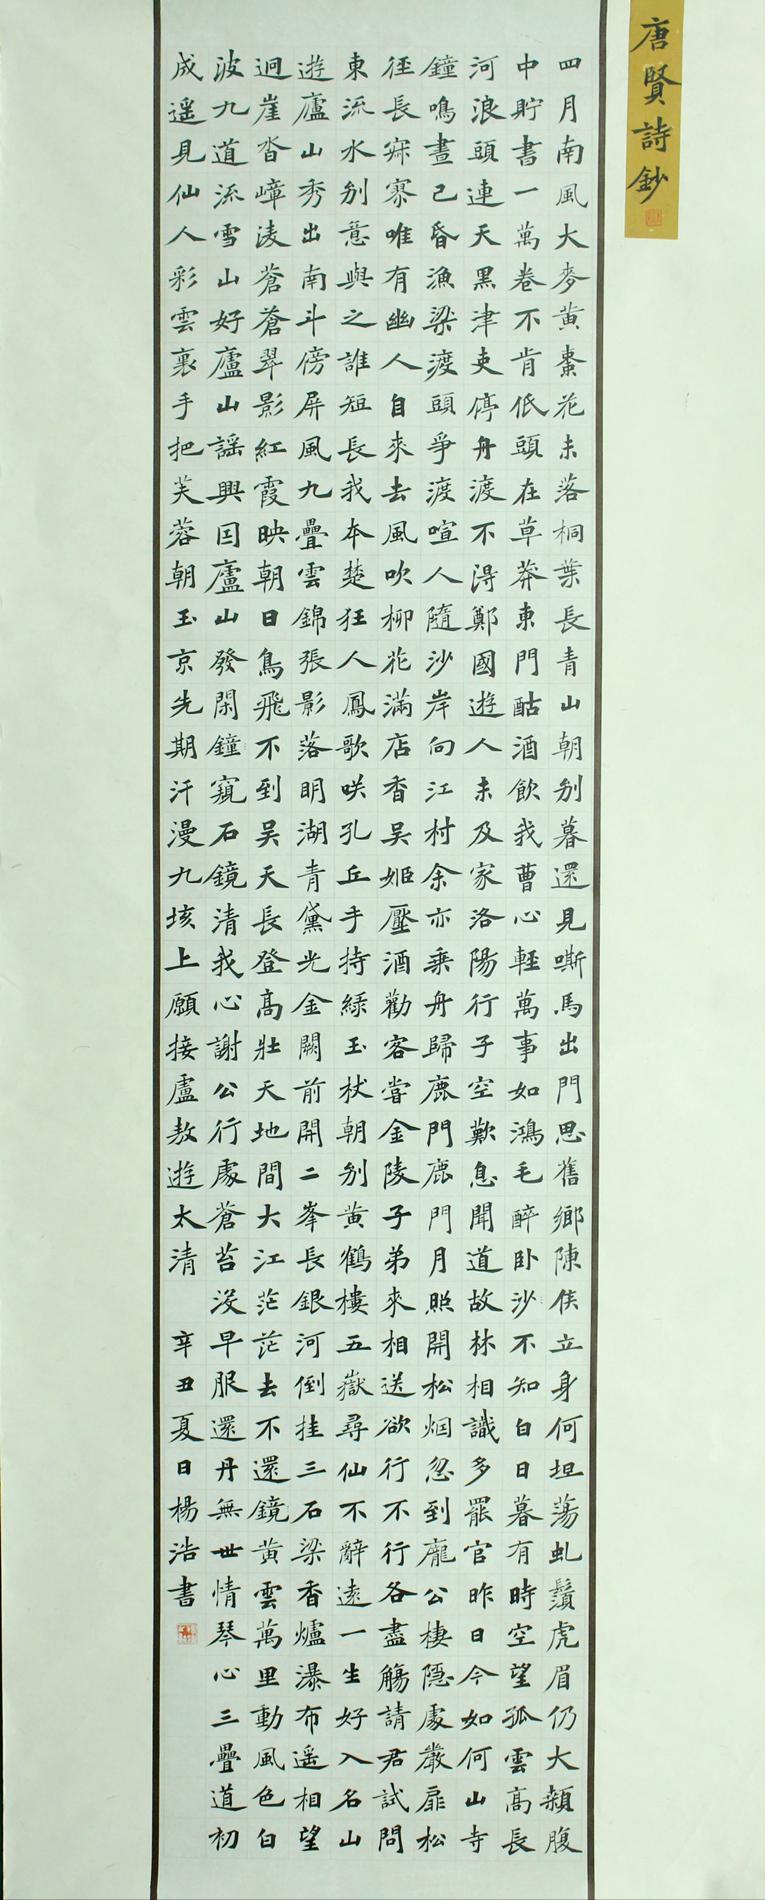 唐賢詩鈔
四月南風大麥黃棗花未落桐葉長青山朝別暮還見嘶馬出門思舊鄉陳侯立身何坦蕩虬鬚虎眉仍大顙腹
中貯書一萬卷不肯低頭在草莽東門酤酒飲我曹心輕萬事如鴻毛醉臥沙不知白日暮有時空望孤雲高長
河浪頭連天黑津吏停舟渡不得鄭國遊人未及家洛陽行子空歎息聞道故林相識多罷官昨日今如何山寺
鐘鳴晝已昏漁梁渡頭爭渡喧人隨沙岸向江村余亦乘舟歸鹿門鹿門月照開松烟忽到龐公棲隱處巖扉松
徑長寂寥唯有幽人自來去風吹柳花滿店香吳姬壓酒勸客嘗金陵子弟來相送欲行不行各盡觴請君試問
東流水別意與之誰短長我本楚狂人鳳歌咲孔丘手持綠玉杖朝別黃鶴樓五嶽尋仙不辭遠一生好入名山
遊廬山秀出南斗傍屏風九疊雲錦張影落明湖青黛光金闕前開二峯長銀河倒挂三石梁香爐瀑布遥相望
迴崖沓嶂淩蒼蒼翠影紅霞映朝日鳥飛不到吳天長登高壯天地間大江茫茫去不還鏡黃雲萬里動風色白
波九道流雪山好廬山謡興因廬山發閑鐘窺石鏡清我心謝公行處蒼苔没早服還丹無世情琴心三疊道初
成遥見仙人彩雲裏手把芙蓉朝玉京先期汗漫九垓上願接盧敖遊太清
辛丑夏日楊浩書